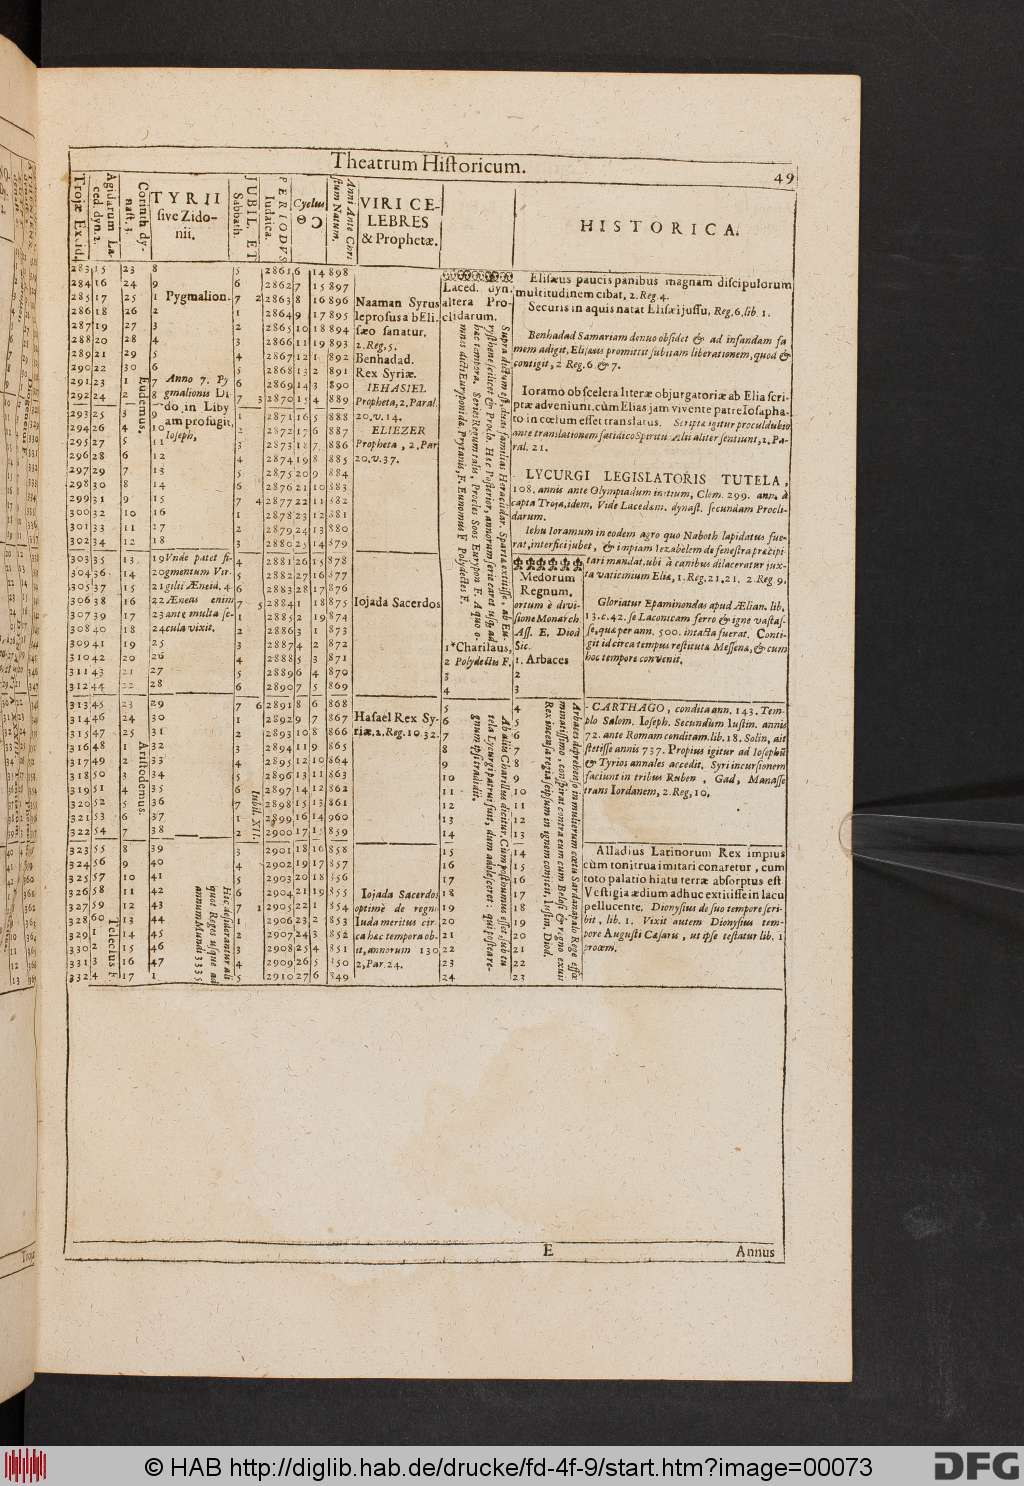 Theatrum Historicum.
49
Trojæ Excid.
Agidarum La-
ced. dyn. 2.
Corinth dy-
nast. 3.
TYRII
sive Zido-
nii.
JUBIL. ET
Sabbath.
PERIODUS
Iudaica.
Cyclus
☉ ☽
Anni Ante Chri-
stum Natum.
VIRI CE-
LEBRES
& Prophetæ.
HISTORICA.
283 15 23 8 5 2861 6 14 898
284 16 24 9 6 2862 7 15 897
285 17 25 1 Pygmalion. 7 2 2863 8 16 896
286 18 26 2 1 2864 9 17 895
287 19 27 3 2 2865 10 18 894
288 20 28 4 3 2866 11 19 893
289 21 29 5 4 2867 12 1 892
290 22 30 6 5 2868 13 2 891
291 23 1 7 6 2869 14 3 890
292 24 2 8 7 3 2870 15 4 889
293 25 3 9 1 2871 16 5 888
294 26 4 10 2 2872 17 6 887
295 27 5 11 3 2873 18 7 886
296 28 6 12 4 2874 19 8 885
297 29 7 13 5 2875 20 9 884
298 30 8 14 6 2876 21 10 883
299 31 9 15 7 4 2877 22 11 882
300 32 10 16 1 2878 23 12 881
301 33 11 17 2 2879 24 13 880
302 34 12 18 3 2880 25 14 879
303 35 13 19 4 2881 26 15 878
304 36 14 20 5 2882 27 16 877
305 37 15 21 6 2883 28 17 876
306 38 16 22 7 5 2884 1 18 875
307 39 17 23 1 2885 2 19 874
308 40 18 24 2 2886 3 1 873
309 41 19 25 3 2887 4 2 872
310 42 20 26 4 2888 5 3 871
311 43 21 27 5 2889 6 4 870
312 44 22 28 6 2890 7 5 869
313 45 23 29 7 6 2891 8 6 868
314 46 24 30 1 2892 9 7 867
315 47 25 31 2 2893 10 8 866
316 48 1 32 3 2894 11 9 865
317 49 2 33 4 2895 12 10 864
318 50 3 34 5 2896 13 11 863
319 51 4 35 6 2897 14 12 862
320 52 5 36 7 2898 15 13 861
321 53 6 37 1 2899 16 14 860
322 54 7 38 2 2900 17 15 859
323 55 8 39 3 2901 18 16 858
324 56 9 40 4 2902 19 17 857
325 57 10 41 5 2903 20 18 856
326 58 11 42 6 2904 21 19 855
327 59 12 43 7 1 2905 22 1 854
328 60 13 44 1 2906 23 2 853
329 1 14 45 2 2907 24 3 852
330 2 15 46 3 2908 25 4 851
331 3 16 47 4 2909 26 5 850
332 4 17 1 5 2910 27 6 849
Eudemus.
Aristodemus.
Telectus F.
Anno 7. Py
gmalionis Di
do, in Liby
am profugit,
Ioseph.
Unde patet fi-
gmentum Vir-
gilii Æneid. 4
Æneas enim
ante multa se-
cula vixit.
Hic desiderantur ali
quot Reges usque ad
annum Mundi 3335
Jubil. XII.
Naaman Syrus
leprosus a b Eli-
sæo sanatur,
2. Reg. 5.
Benhadad.
Rex Syriæ.
IEHASIEL
Propheta, 2. Paral.
20. v. 14.
ELIEZER
Propheta, 2. Par
20. v. 37.
Iojada Sacerdos
Hasael Rex Sy-
riæ, 2. Reg. 10. 32.
Iojada Sacerdos
optimè de regno
Iuda meritus cir
ca hæc tempora ob-
it, annorum 130
2, Par. 24.
Laced. dyn.
altera Pro-
clidarum.
Supra dictum est, duas familias Heraclidar. Spartæ extitisse ab Eu-
rysthene scilicet & Proclo. Hæc Posterior, annorum serie caret usq; ad
hæc tempora. Series Regum talis, Procles Soos Eurypon F. A quo o-
mnes dicti Euryponidæ Prytanis, F. Eunomus F Polydectes F.
1*Charilaus,
2 Polydectis F.
3
4
5
6
7
8
9
10
11
12
13
14
15
16
17
18
19
20
21
22
23
24
Ab aliis Charillus dicitur. Cum posthumus esset, sub tu
tela Lycurgi patrui fuit, dum adolesceret: qui postea re-
gnum ipsi tradidit.
Medorum
Regnum.
ortum è divi-
sione Monarch
Ass. E. Diod
Sic.
1. Arbaces
2
3
4
5
6
7
8
9
10
11
12
13
14
15
16
17
18
19
20
21
22
23
Arbaces deprehenso in mulierum cœtu Sardanapalo Rege effœ
minatissimo, conspirat contra eum cum Belosi & regno exuit
Rex incensa regia, seipsum in ignem conjicit. Iustin. Diod.
Elisæus paucis panibus magnam discipulorum
multitudinem cibat, 2. Reg 4.
Securis in aquis natat Elisæi jussu, Reg. 6. lib. 1.
Benhadad Samariam denuo obsidet & ad infandam fa
mem adigit, Elisæus promittit subitam liberationem, quod &
contigit, 2 Reg. 6 & 7.
Ioramo ob scelera literæ objurgatoriæ ab Elia scri-
ptæ adveniunt, cùm Elias jam vivente patre Iosapha-
to in cœlum esset translatus. Scripta igitur proculdubio
ante translationem fatidico Spiritu. Alii aliter sentiunt, 2, Pa-
ral. 21.
LYCURGI LEGISLATORIS TUTELA,
108. annis ante Olympiadum initium, Clem. 299. ann. à
capta Troja, idem. Vide Lacedæm. dynast. secundam Procli-
darum.
Iehu Ioramum in eodem agro quo Naboth lapidatus fue-
rat, interfici jubet, & impiam Iezabelem de fenestra præcipi
tari mandat, ubi à canibus dilaceratur jux-
ta vaticinium Eliæ, 1. Reg. 21. 21. 2. Reg 9.
Gloriatur Epaminondas apud Ælian. lib.
13. c. 42. se Laconicam ferro & igne vastas-
se, quæ per ann. 500. intacta fuerat. Conti-
git id circa tempus restituta Messena, & cum
hoc tempore convenit.
CARTHAGO, condita ann. 143. Tem-
plo Salom. Ioseph. Secundum Iustin. annis
72. ante Romam conditam. lib. 18. Solin, ait
stetisse annis 737. Propius igitur ad Iosephū
& Tyrios annales accedit. Syri incursionem
faciunt in tribus Ruben, Gad, Manasse
trans Iordanem, 2. Reg, 10.
Alladius Latinorum Rex impius
cùm tonitrua imitari conaretur, cum
toto palatio hiatu terræ absorptus est.
Vestigia ædium adhuc extitisse in lacu
pellucente. Dionysius de suo tempore scri-
bit, lib. 1. Vixit autem Dionysius tem-
pore Augusti Cæsaris, ut ipse testatur lib. 1
proœm.
E
Annus
© HAB http://diglib.hab.de/drucke/fd-4f-9/start.htm?image=00073
DFG